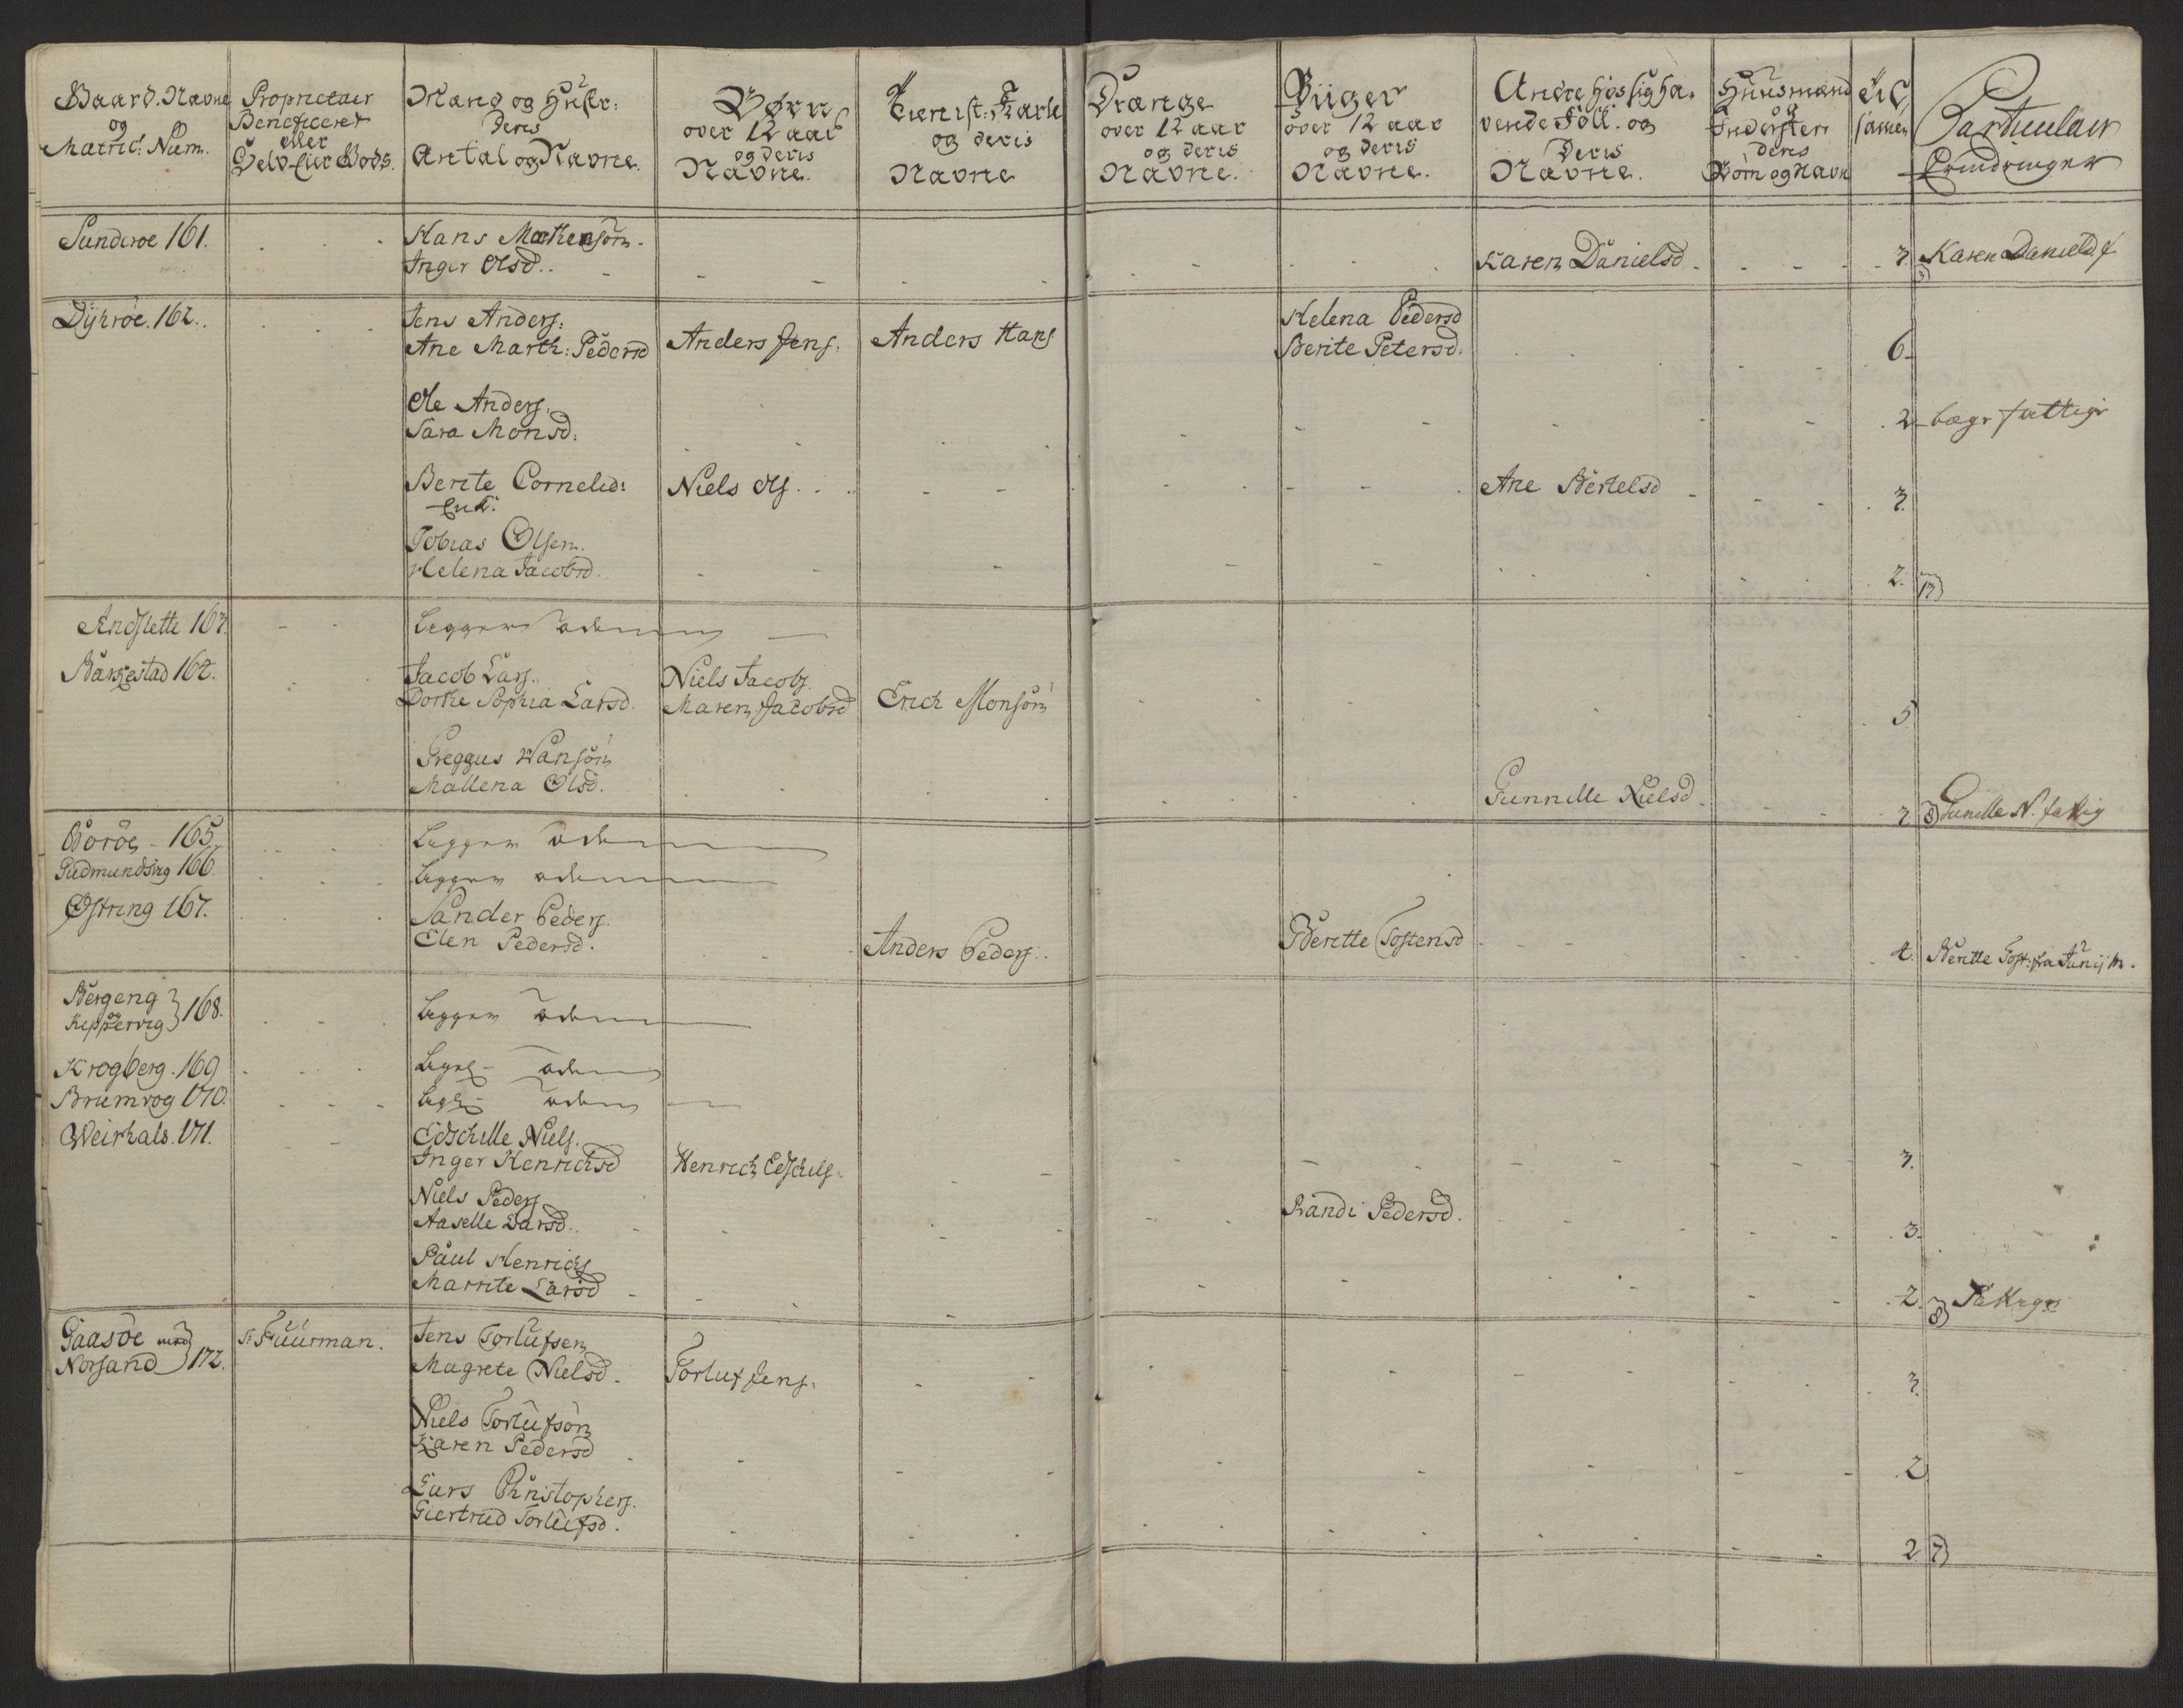 Gaard. Navne og Matric: Num.
Proprietair Beneficeret eller Selv-Eier Gods.
Mand og Hustr: Deres Antal og Navne.
Børn over 12 aar og deris Navne.
Tienist: Karle og deris Navne
Drænge over 12 aar og deris Navne.
Piiger over 12 aar og deris Navne.
Andre hos sig havende Folk. og Deris Navne.
Huusmænd og Inderster deres Børn og Navne
Til sammen
Particulair Erindringer
Sunderøe 161.
Hans Mortensøn.
Inger Olsd.
Karen Danielsd. 3.
Karen Danielsd. f
3)
Dyrøe. 162.
Jens Anders:
Ane Marth: Pedersd
Anders Jens.
Anders Hans
Helena Pedersd
Berite Petersd.
6.
Ole Anders.
Sara Monsd.
2
begr fattige
Berite Cornelid:
Enk:
Niels Ols.
Ane Bertelsd
3.
Tobias Olsen.
Helena Jacobsd.
2. 13)
Andslette 163.
Legger øde
Barkestad 164.
Jacob Lars.
Dorthe Sophia Larsd.
Niels Jacobs.
Maren Jacobsd
Erich Monsøn
5
Greggus Hansøn
Mallena Olsd.
Gunnille Nielsd.
3 8) Gunille N. fattig
Borøe 165
Legger øde
Gudmundsvig 166.
Legger øde
Østring 167.
Sander Peders.
Elen Pedersd.
Anders Peders.
Berette Tostensd
4. Beritte Tost: fra Junij M.
Bergeng og Keppervig } 168.
Legger øde
Krogberg. 169
Legg øde
Brumvog 170.
Legg øde
Weirhals. 171.
Edschille Niels.
Inger Henrichsd
Henrich Edschils.
3.
Niels Peders
Aaselle Larsd.
Randi Pedersd.
3.
Paul Henrichs
Marrite Larsd
2. 8) Fattige
Gaasøe med Norsand } 172.
Sr Fuurman.
Jens Torlufsen
Magrete Nielsd.
Torluf Jens.
3.
Niels Torlufsøn
Karen Pedersd
2
Lars Christophers.
Giertrud Torlufsd.
2 7)